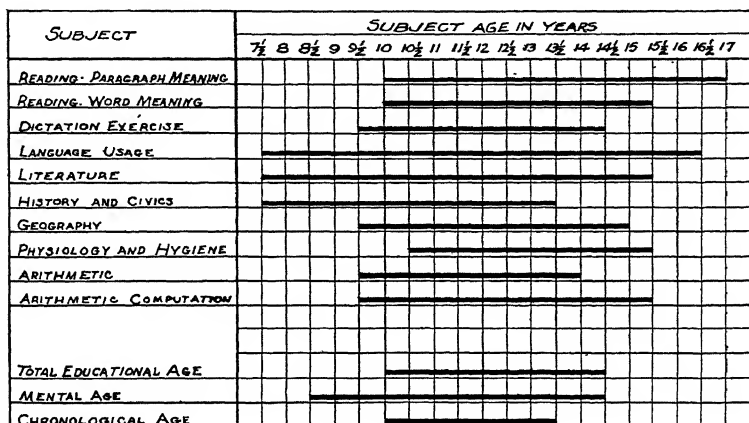 SUBJECT
SUBJECT AGE IN YEARS
7½ 8 8½ 9 9½ 10 10½ 11 11½ 12 12½ 13 13½ 14 14½ 15 15½ 16 16½ 17
READING-PARAGRAPH MEANING
READING-WORD MEANING
DICTATION EXERCISE
LANGUAGE USAGE
LITERATURE
HISTORY AND CIVICS
GEOGRAPHY
PHYSIOLOGY AND HYGIENE
ARITHMETIC
ARITHMETIC COMPUTATION
TOTAL EDUCATIONAL AGE
MENTAL AGE
CHRONOLOGICAL AGE